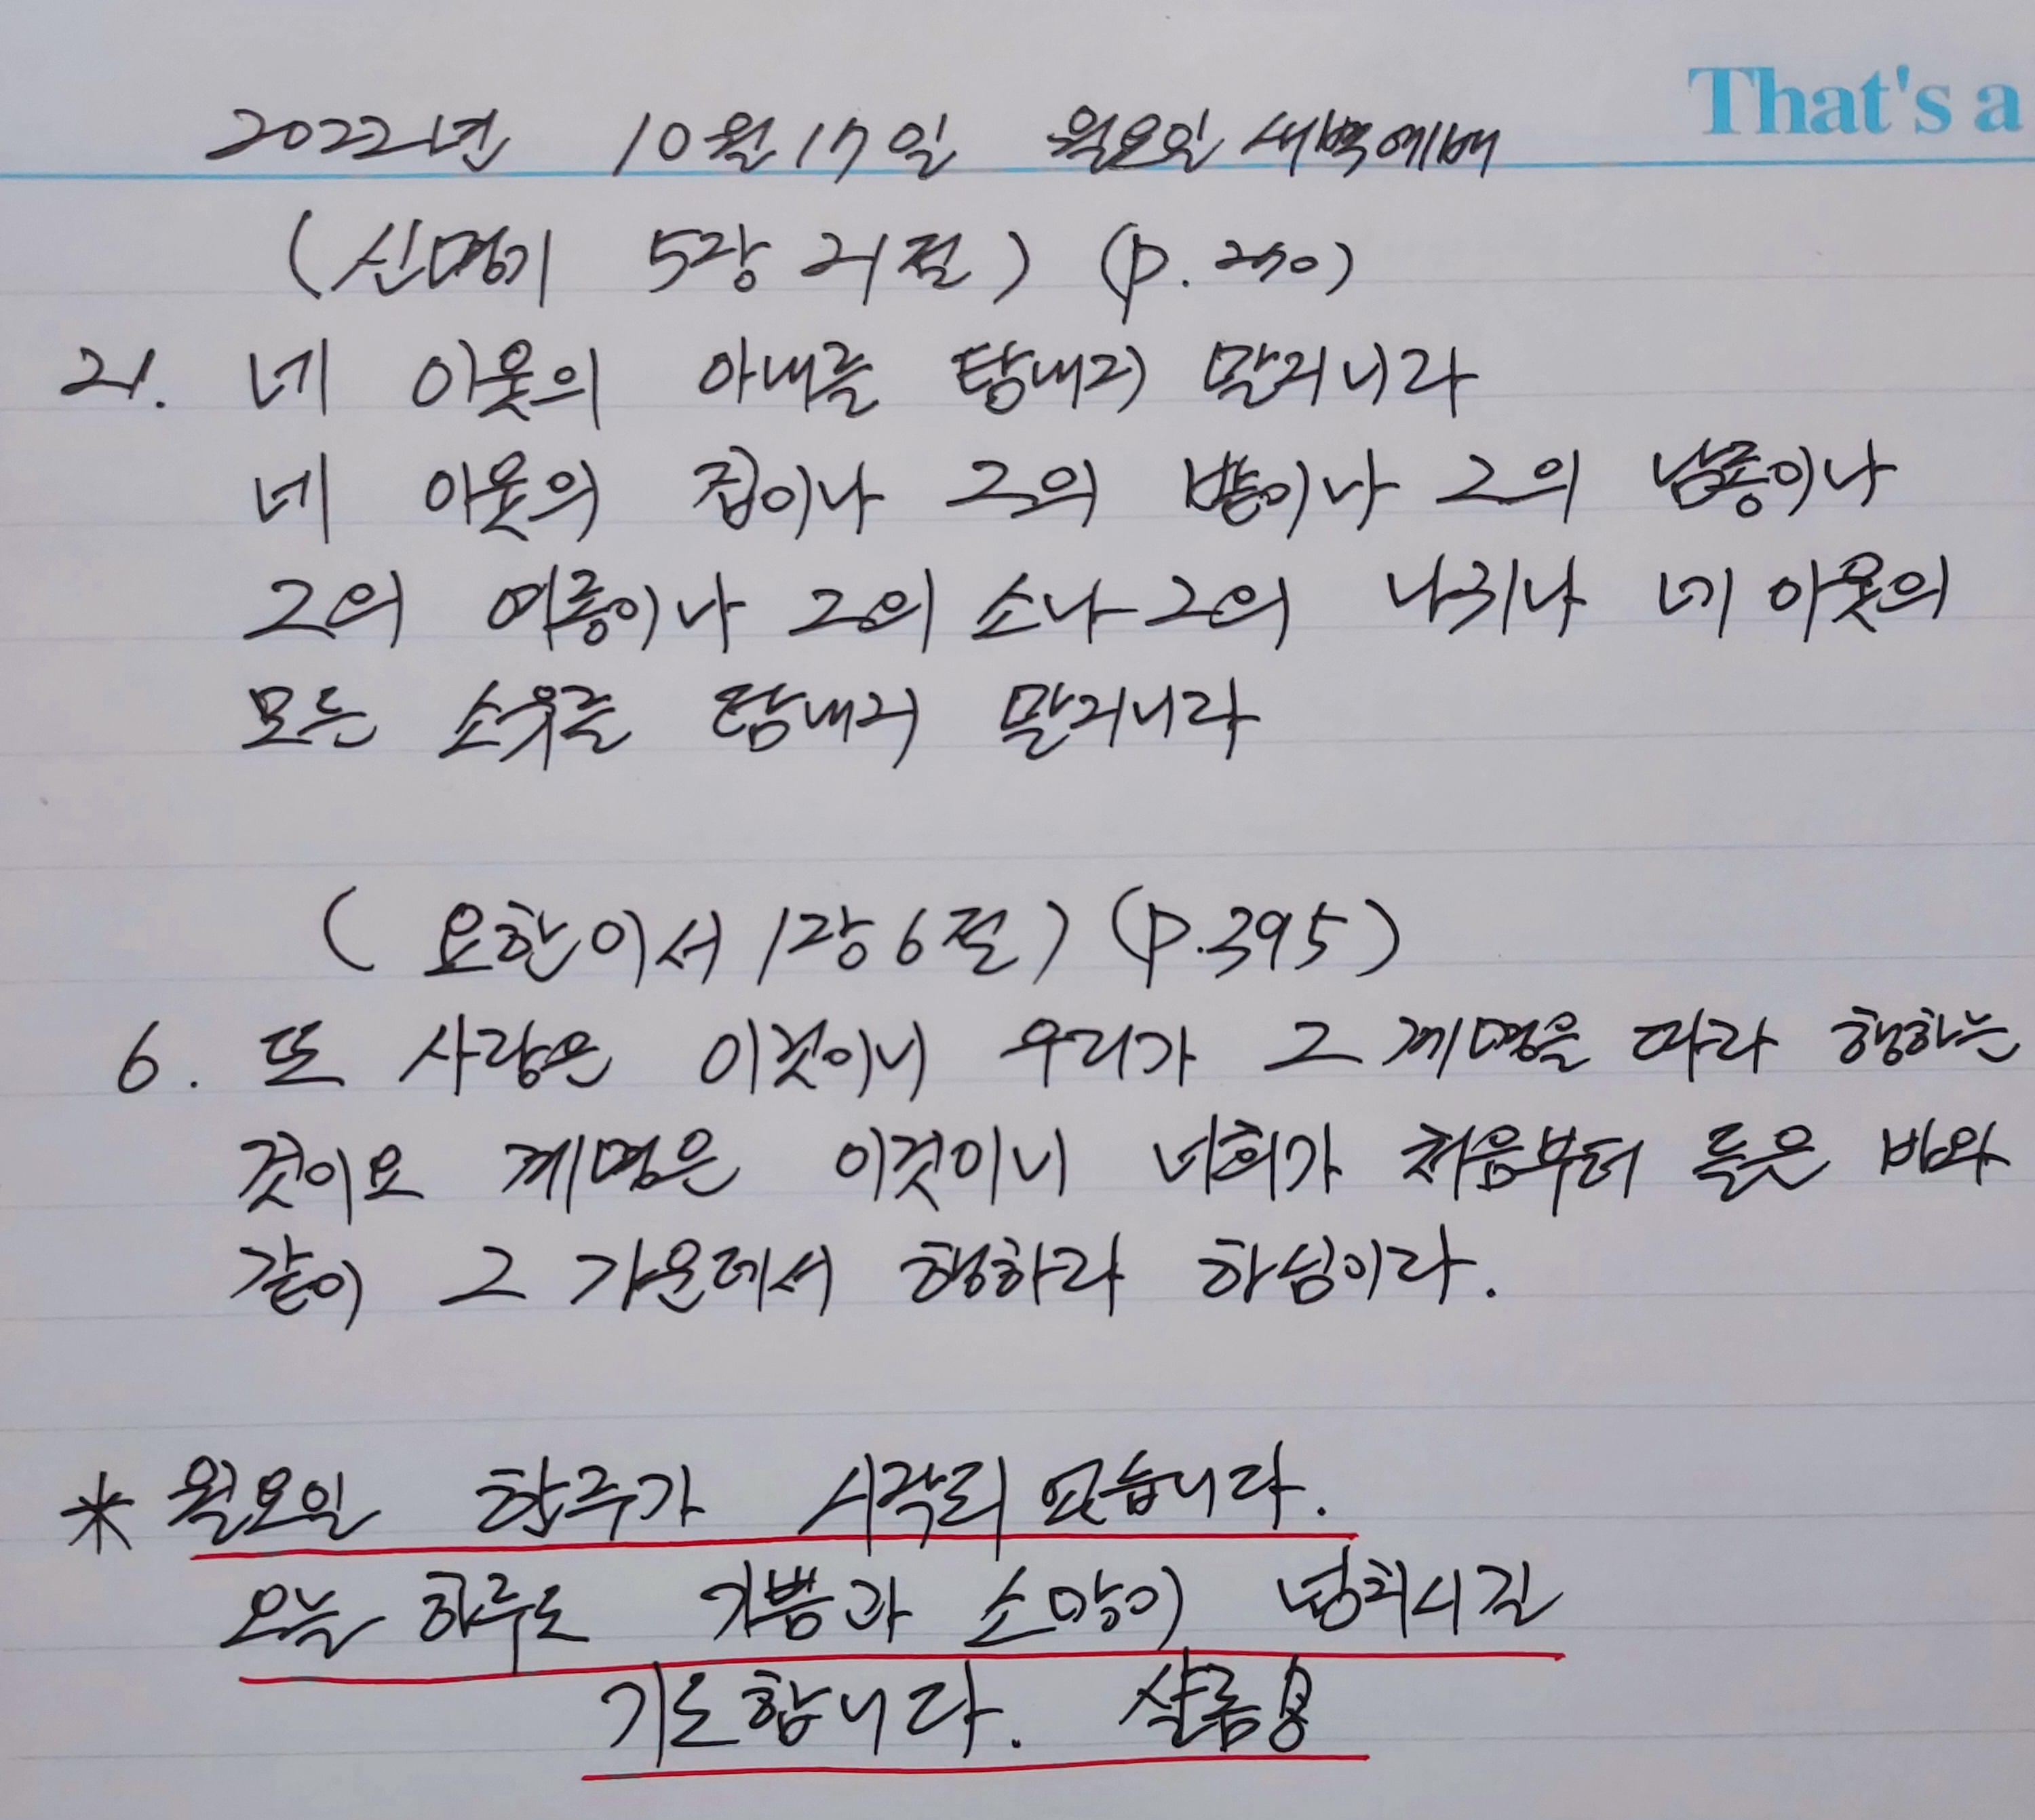 That's a
2022년 10월 17일 월요일 새벽예배
(신명기 5장 21절) (P. 270)
21. 네 이웃의 아내를 탐내지 말지니라
네 이웃의 집이나 그의 밭이나 그의 남종이나
그의 여종이나 그의 소나 그의 나귀나 네 이웃의
모든 소유를 탐내지 말지니라
(요한이서 1장 6절) (P.395)
6. 또 사랑은 이것이니 우리가 그 계명을 따라 행하는
것이요 계명은 이것이니 너희가 처음부터 들은 바와
같이 그 가운데서 행하라 하심이라.
* 월요일 한주가 시작되었습니다.
오늘 하루도 기쁨과 소망이 넘치시길
기도합니다. 샬롬